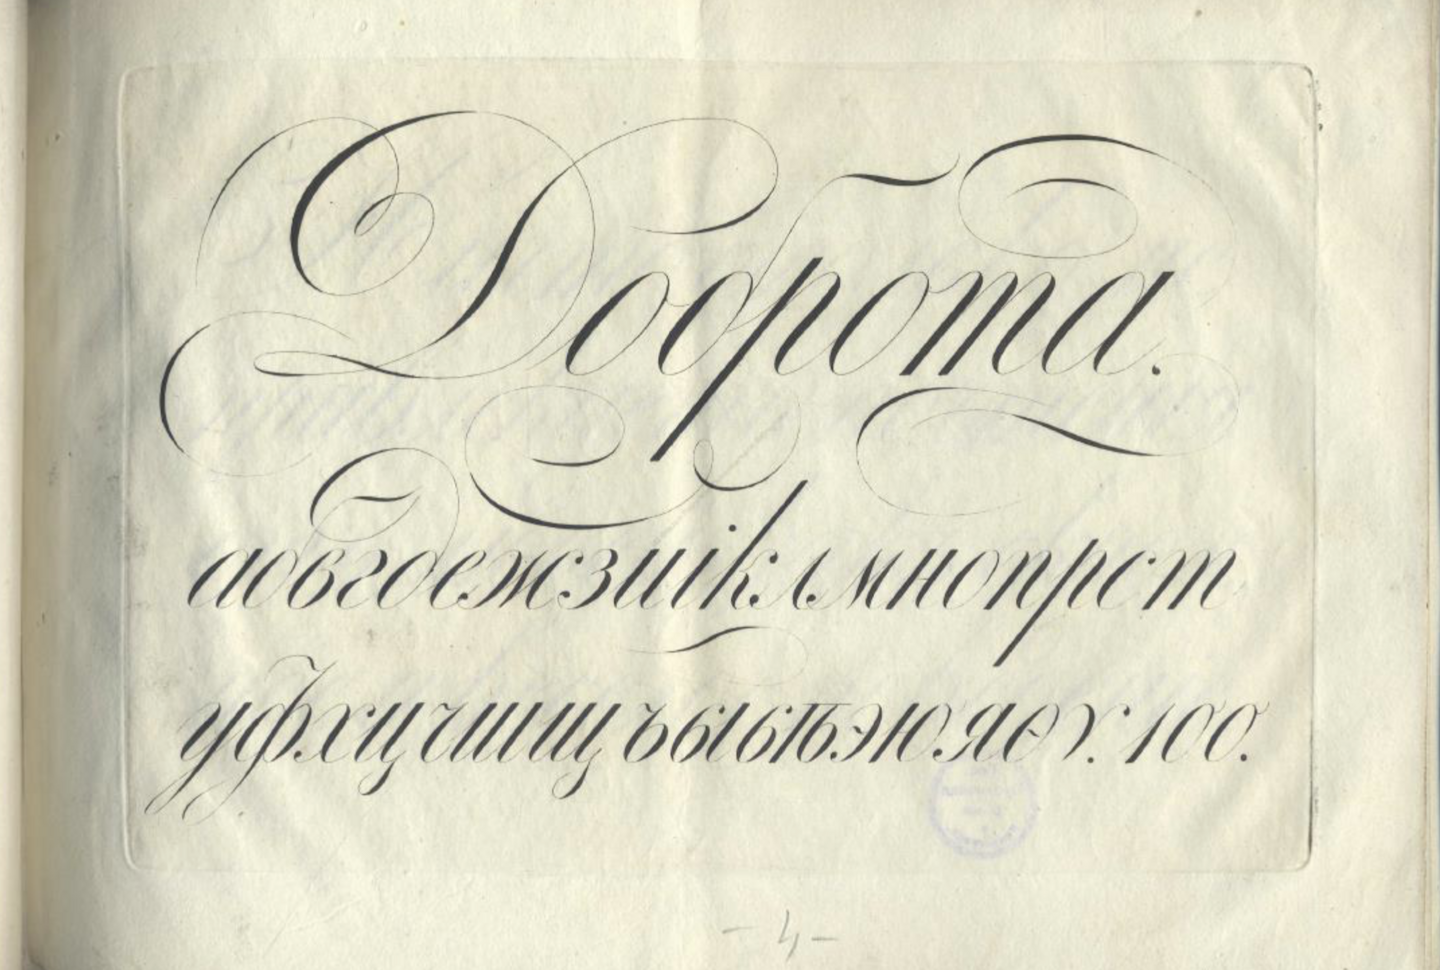 Доброта.
абвгдежзиіклмнопрст
уфхцчшщъыьѣэю.яѳѵ. 100.
- 4 -